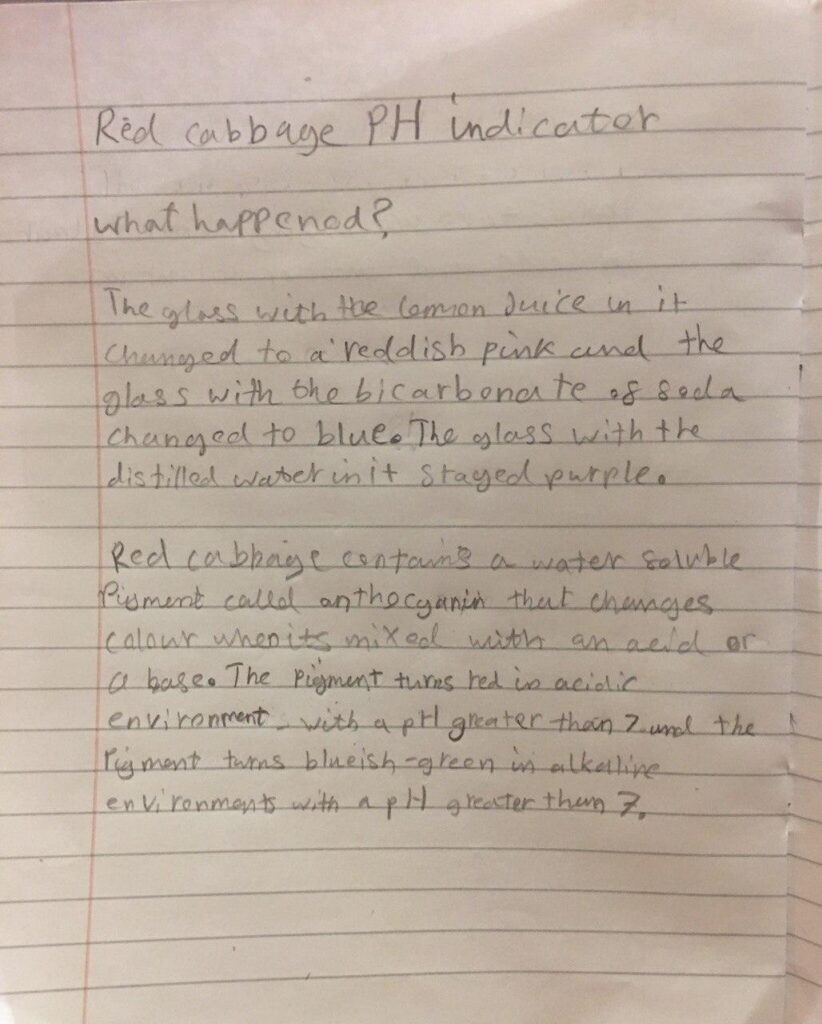 Red cabbage PH indicator
what happened?
The glass with the lemon Juice in it
changed to a reddish pink and the
glass with the bicarbonate of soda
changed to blue. The glass with the
distilled water in it stayed purple.
Red cabbage contains a water soluble
Pigment called anthocyanin that changes
colour when its mixed with an acid or
a base. The pigment turns red in acidic
environment with a pH greater than 7 and the
pigment turns blueish-green in alkaline
environments with a pH greater than 7.